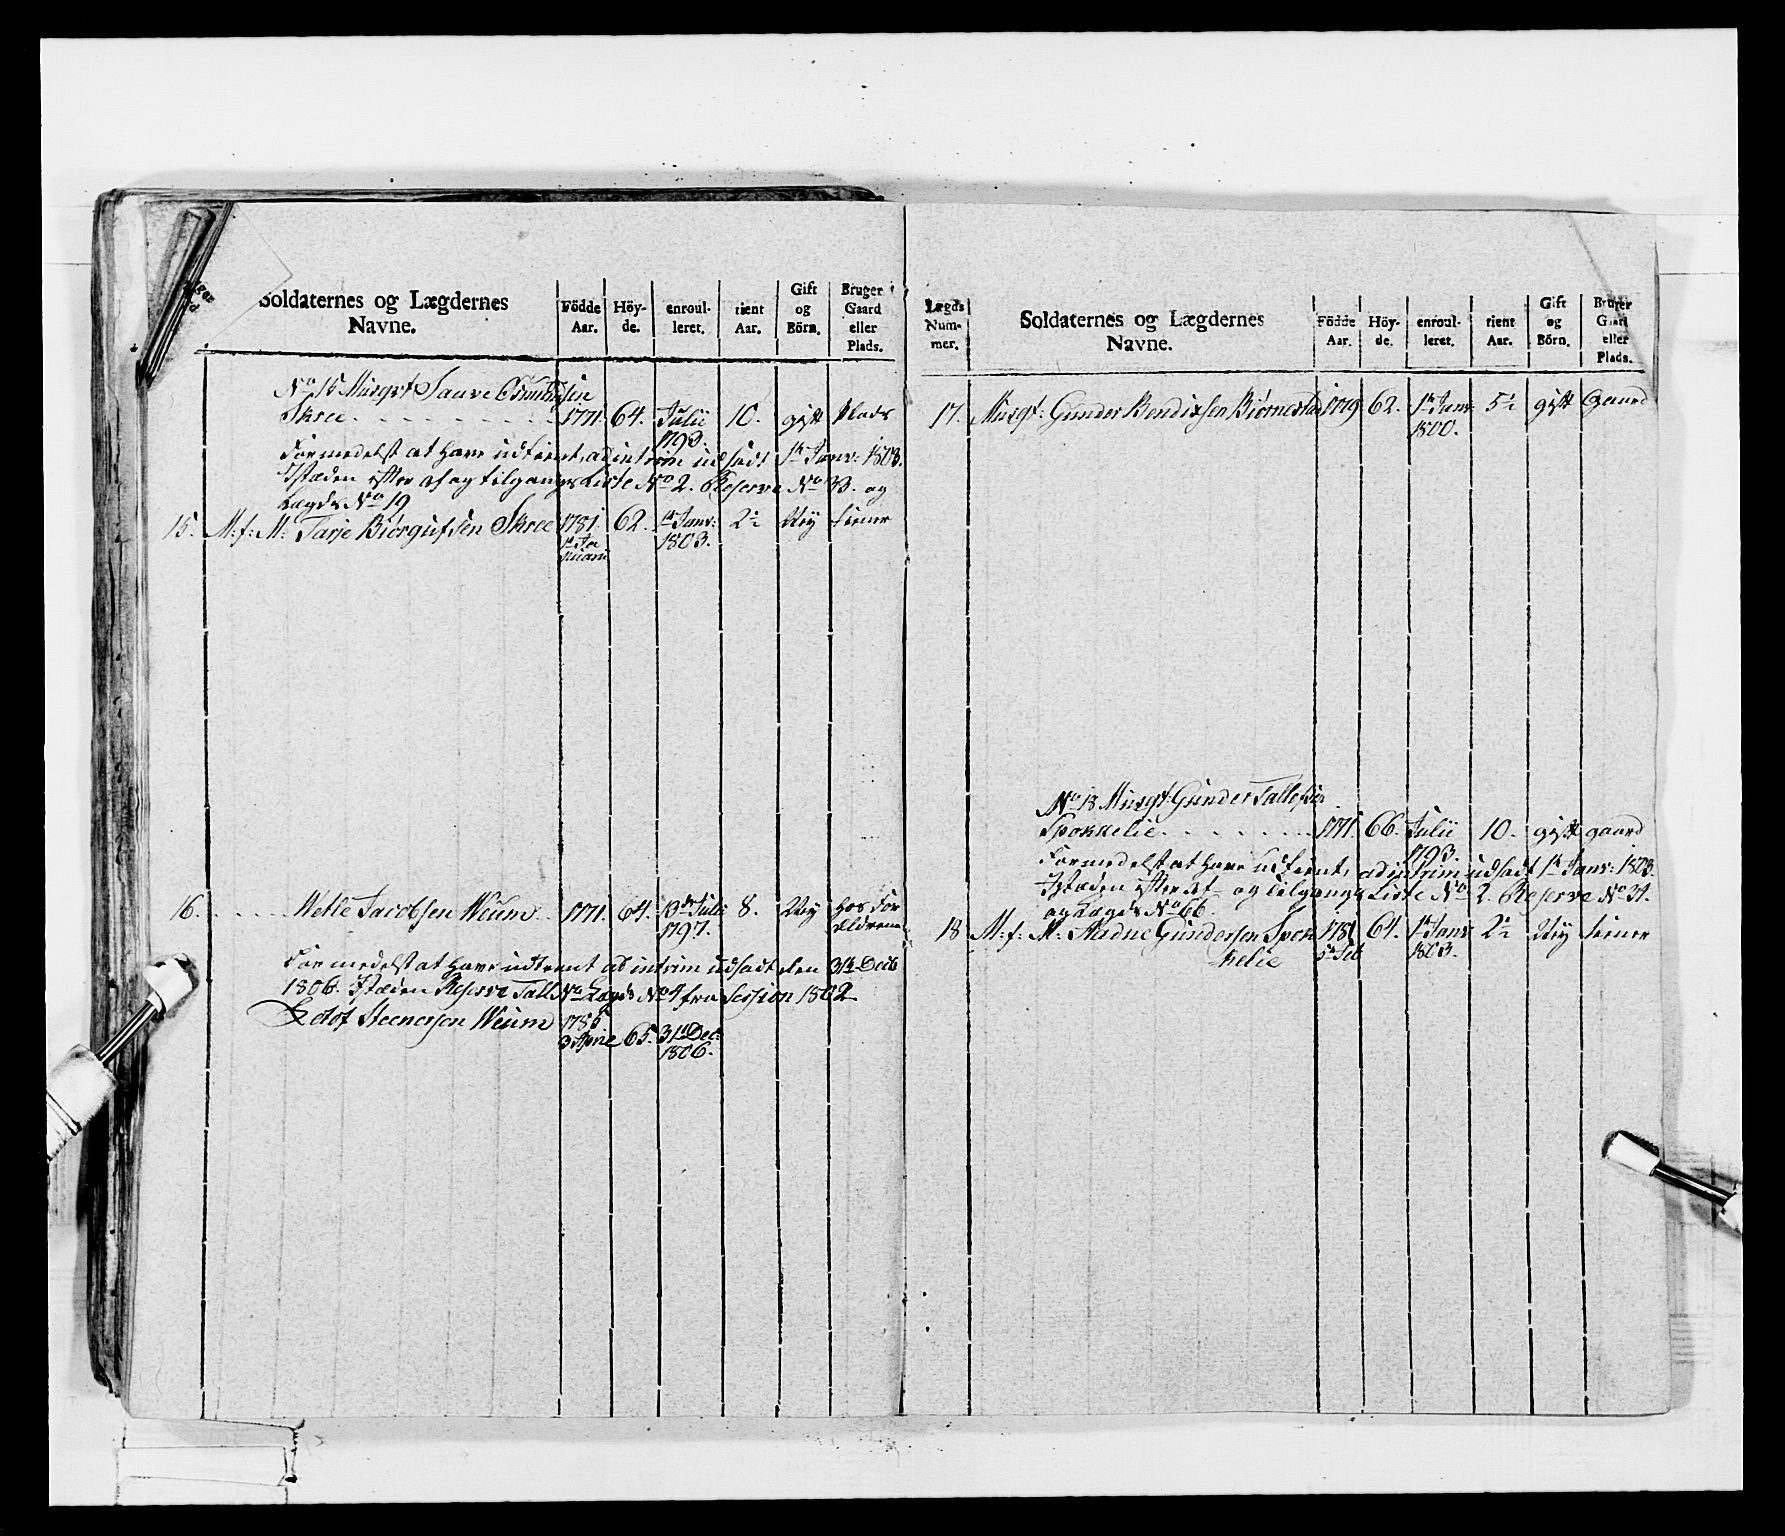 Soldaternes og Lægdernes
Navne.
Födde
Aar.
Höy-
de.
enroul-
leret.
tient
Aar.
Gift
og
Börn.
Bruger
Gaard
eller
Plads.
No 15 Musqt Saave
Skree. 1771. 64. Julii 10. gift Plads
1793.
Formedelst at have udtient, ad intrim udsadt 1te Janv: 1803.
Istæden efter af og tilgangs Liste No 2. Reserve No 33. og
Lægds No 19
15. M: f: M: Tarje Biørgufsen Skree 1781. 62. 1te Janv: 2 Uig tiener
1803.
16. Wetle Jacobsen Weum 1771. 64. Julii 8. Uig hos For
1797. Eldrene
Formedelst at have udtient ad intrim udsadt den 31te Decb
1806. Istæden Reserve Lægds No 4 fra Session 1802
Steenersen Weum 1785.
3 Aprie 65. 31te Dec:
1806.
Lægds
Num-
mer.
Soldaternes og Lægdernes
Navne.
Födde
Aar.
Höy-
de.
enroul-
leret.
tient
Aar.
Gift
og
Börn.
Bruger
Gaard
eller
Plads.
17. Musqt: Gunder Bendixsen Biørnestad 1779 62. 1te Janv: 5 gift Gaard
1800.
No 18 Musqt: Gunder Tallefsen
Spokkelie. 1771. 66. Julii 10. gift gaard
1793.
Formedelst at have udtient, ad intrim udsadt 1te Janv: 1803.
Istæden efter Af- og tilgangs Liste No 2. Reserve No 31.
og Lægds No 66.
18 M: f: M: Gundersen Spok 1781 64. 1te Janv 2 Uig tiener
kelie Feb 1803.